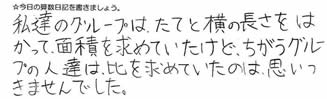 ☆今日の算数日記を書きましょう。
私達のグループは、たてと横の長さをは
かって、面積を求めていたけど、ちがうグルー
プの人達は、比を求めていたのは、思いつ
きませんでした。